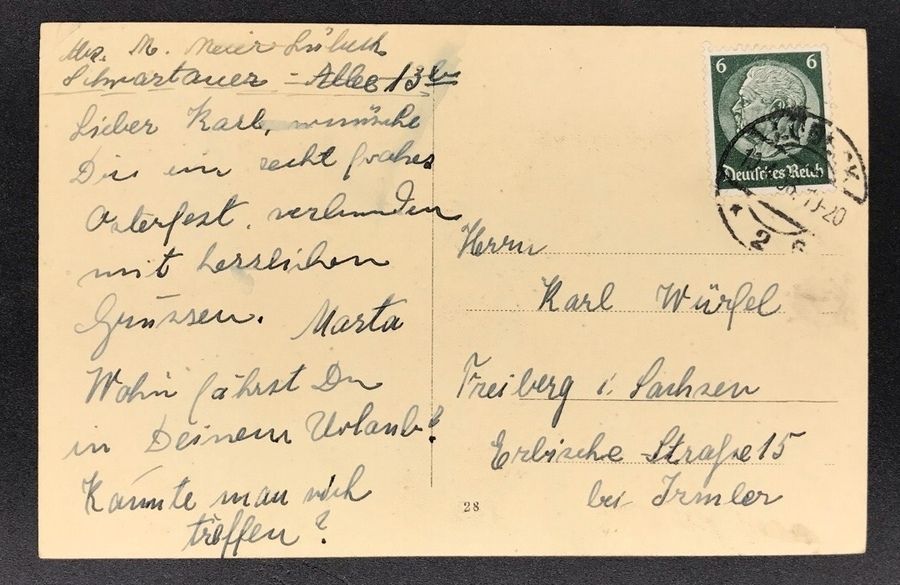 Abs. M. Meier Lübeck
Schwartauer - Allee 13 b
Lieber Karl, wünsche
Dir ein recht frohes
Osterfest, verbunden
mit herzlichen
Grüssen. Marta
Wohin fährst Du
in Deinem Urlaub?
Könnte man sich
treffen?
6 6
Deutsches Reich
LÜBECK
19-20
* 2
Herrn
Karl Würfel
Freiberg i. Sachsen
Erbische Straße 15
bei Irmler
28